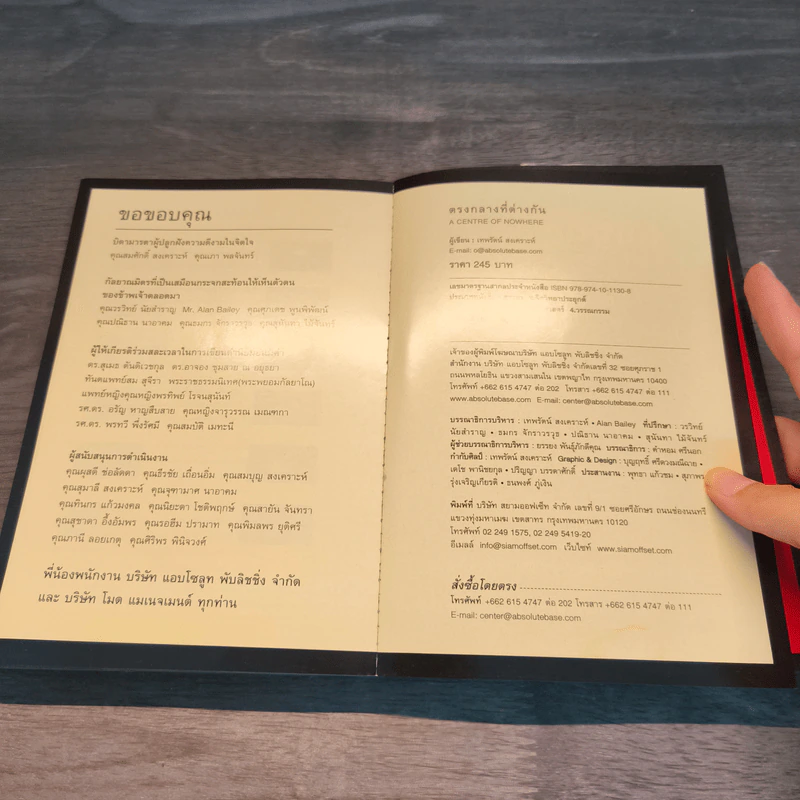 ขอขอบคุณ
บิดามารดาผู้ปลูกฝังความดีงามในจิตใจ
คุณสมศักดิ์ สงเคราะห์ คุณเภา พลจันทร์
กัลยาณมิตรที่เป็นเสมือนกระจกสะท้อนให้เห็นตัวตน
ของข้าพเจ้าตลอดมา
คุณวรวิทย์ นัยสำราญ Mr. Alan Bailey คุณศุภเดช พูนพิพัฒน์
คุณปณิธาน นาอาคม คุณธมกร จักราวรวุธ คุณสุนันทา ไม้จันทร์
ผู้ให้เกียรติร่วมสละเวลาในการเขียนคำนิยม
ดร.สุเมธ ตันติเวชกุล ดร.อาจอง ชุมสาย ณ อยุธยา
ทันตแพทย์สม สุจีรา พระราชธรรมนิเทศ(พระพยอมกัลยาโณ)
แพทย์หญิงคุณหญิงพรทิพย์ โรจนสุนันท์
รศ.ดร. อรัญ หาญสืบสาย คุณหญิงจารุวรรณ เมณฑกา
รศ.ดร. พรทวี พึ่งรัศมี คุณสมบัติ เมทะนี
ผู้สนับสนุนการดำเนินงาน
คุณผุสดี ช่อลัดดา คุณธีรชัย เถื่อนอิ่ม คุณสมบุญ สงเคราะห์
คุณสุมาลี สงเคราะห์ คุณจุฑามาศ นาอาคม
คุณทินกร แก้วมงคล คุณนิยะดา โชติพฤกษ์ คุณสายัน จันทรา
คุณสุชาดา อึ้งอัมพร คุณรอฮีม ปรามาท คุณพิมลพร ยุติศรี
คุณภานี ลอยเกตุ คุณศิริพร พินิจวงศ์
พี่น้องพนักงาน บริษัท แอบโซลูท พับลิชชิ่ง จำกัด
และ บริษัท โมด แมเนจเมนต์ ทุกท่าน
ตรงกลางที่ต่างกัน
A CENTRE OF NOWHERE
ผู้เขียน : เทพรัตน์ สงเคราะห์
E-mail: o@absolutebase.com
ราคา 245 บาท
เลขมาตรฐานสากลประจำหนังสือ ISBN 978-974-10-1130-8
4.วรรณกรรม
เจ้าของผู้พิมพ์โฆษณาบริษัท แอบโซลูท พับลิชชิ่ง จำกัด
สำนักงาน บริษัท แอบโซลูท พับลิชชิ่ง จำกัดเลขที่ 32 ซอยศุภราช 1
ถนนพหลโยธิน แขวงสามเสนใน เขตพญาไท กรุงเทพมหานคร 10400
โทรศัพท์ +662 615 4747 ต่อ 202 โทรสาร +662 615 4747 ต่อ 111
www.absolutebase.com E-mail: center@absolutebase.com
บรรณาธิการบริหาร : เทพรัตน์ สงเคราะห์ • Alan Bailey ที่ปรึกษา : วรวิทย์
นัยสำราญ • ธมกร จักราวรวุธ • ปณิธาน นาอาคม • สุนันทา ไม้จันทร์
ผู้ช่วยบรรณาธิการบริหาร : ธรรยง พันธุ์ภักดีคุณ บรรณาธิการ : คำหอม ศรีนอก
กำกับศิลป์ : เทพรัตน์ สงเคราะห์ Graphic & Design : บุญฤทธิ์ ศรีดวงมณีฉาย •
เดโช พานิชยกุล • ปริญญา บรรดาศักดิ์ ประสานงาน : พุทธา แก้วชม • สุภาพร
รุ่งเจริญเกียรติ • ธนพงศ์ ภู่เงิน
พิมพ์ที่ บริษัท สยามออฟเซ็ท จำกัด เลขที่ 9/1 ซอยศรีอักษร ถนนช่องนนทรี
แขวงทุ่งมหาเมฆ เขตสาทร กรุงเทพมหานคร 10120
โทรศัพท์ 02 249 1575, 02 249 5419-20
อีเมลล์ info@siamoffset.com เว็บไซท์ www.siamoffset.com
สั่งซื้อโดยตรง
โทรศัพท์ +662 615 4747 ต่อ 202 โทรสาร +662 615 4747 ต่อ 111
E-mail: center@absolutebase.com